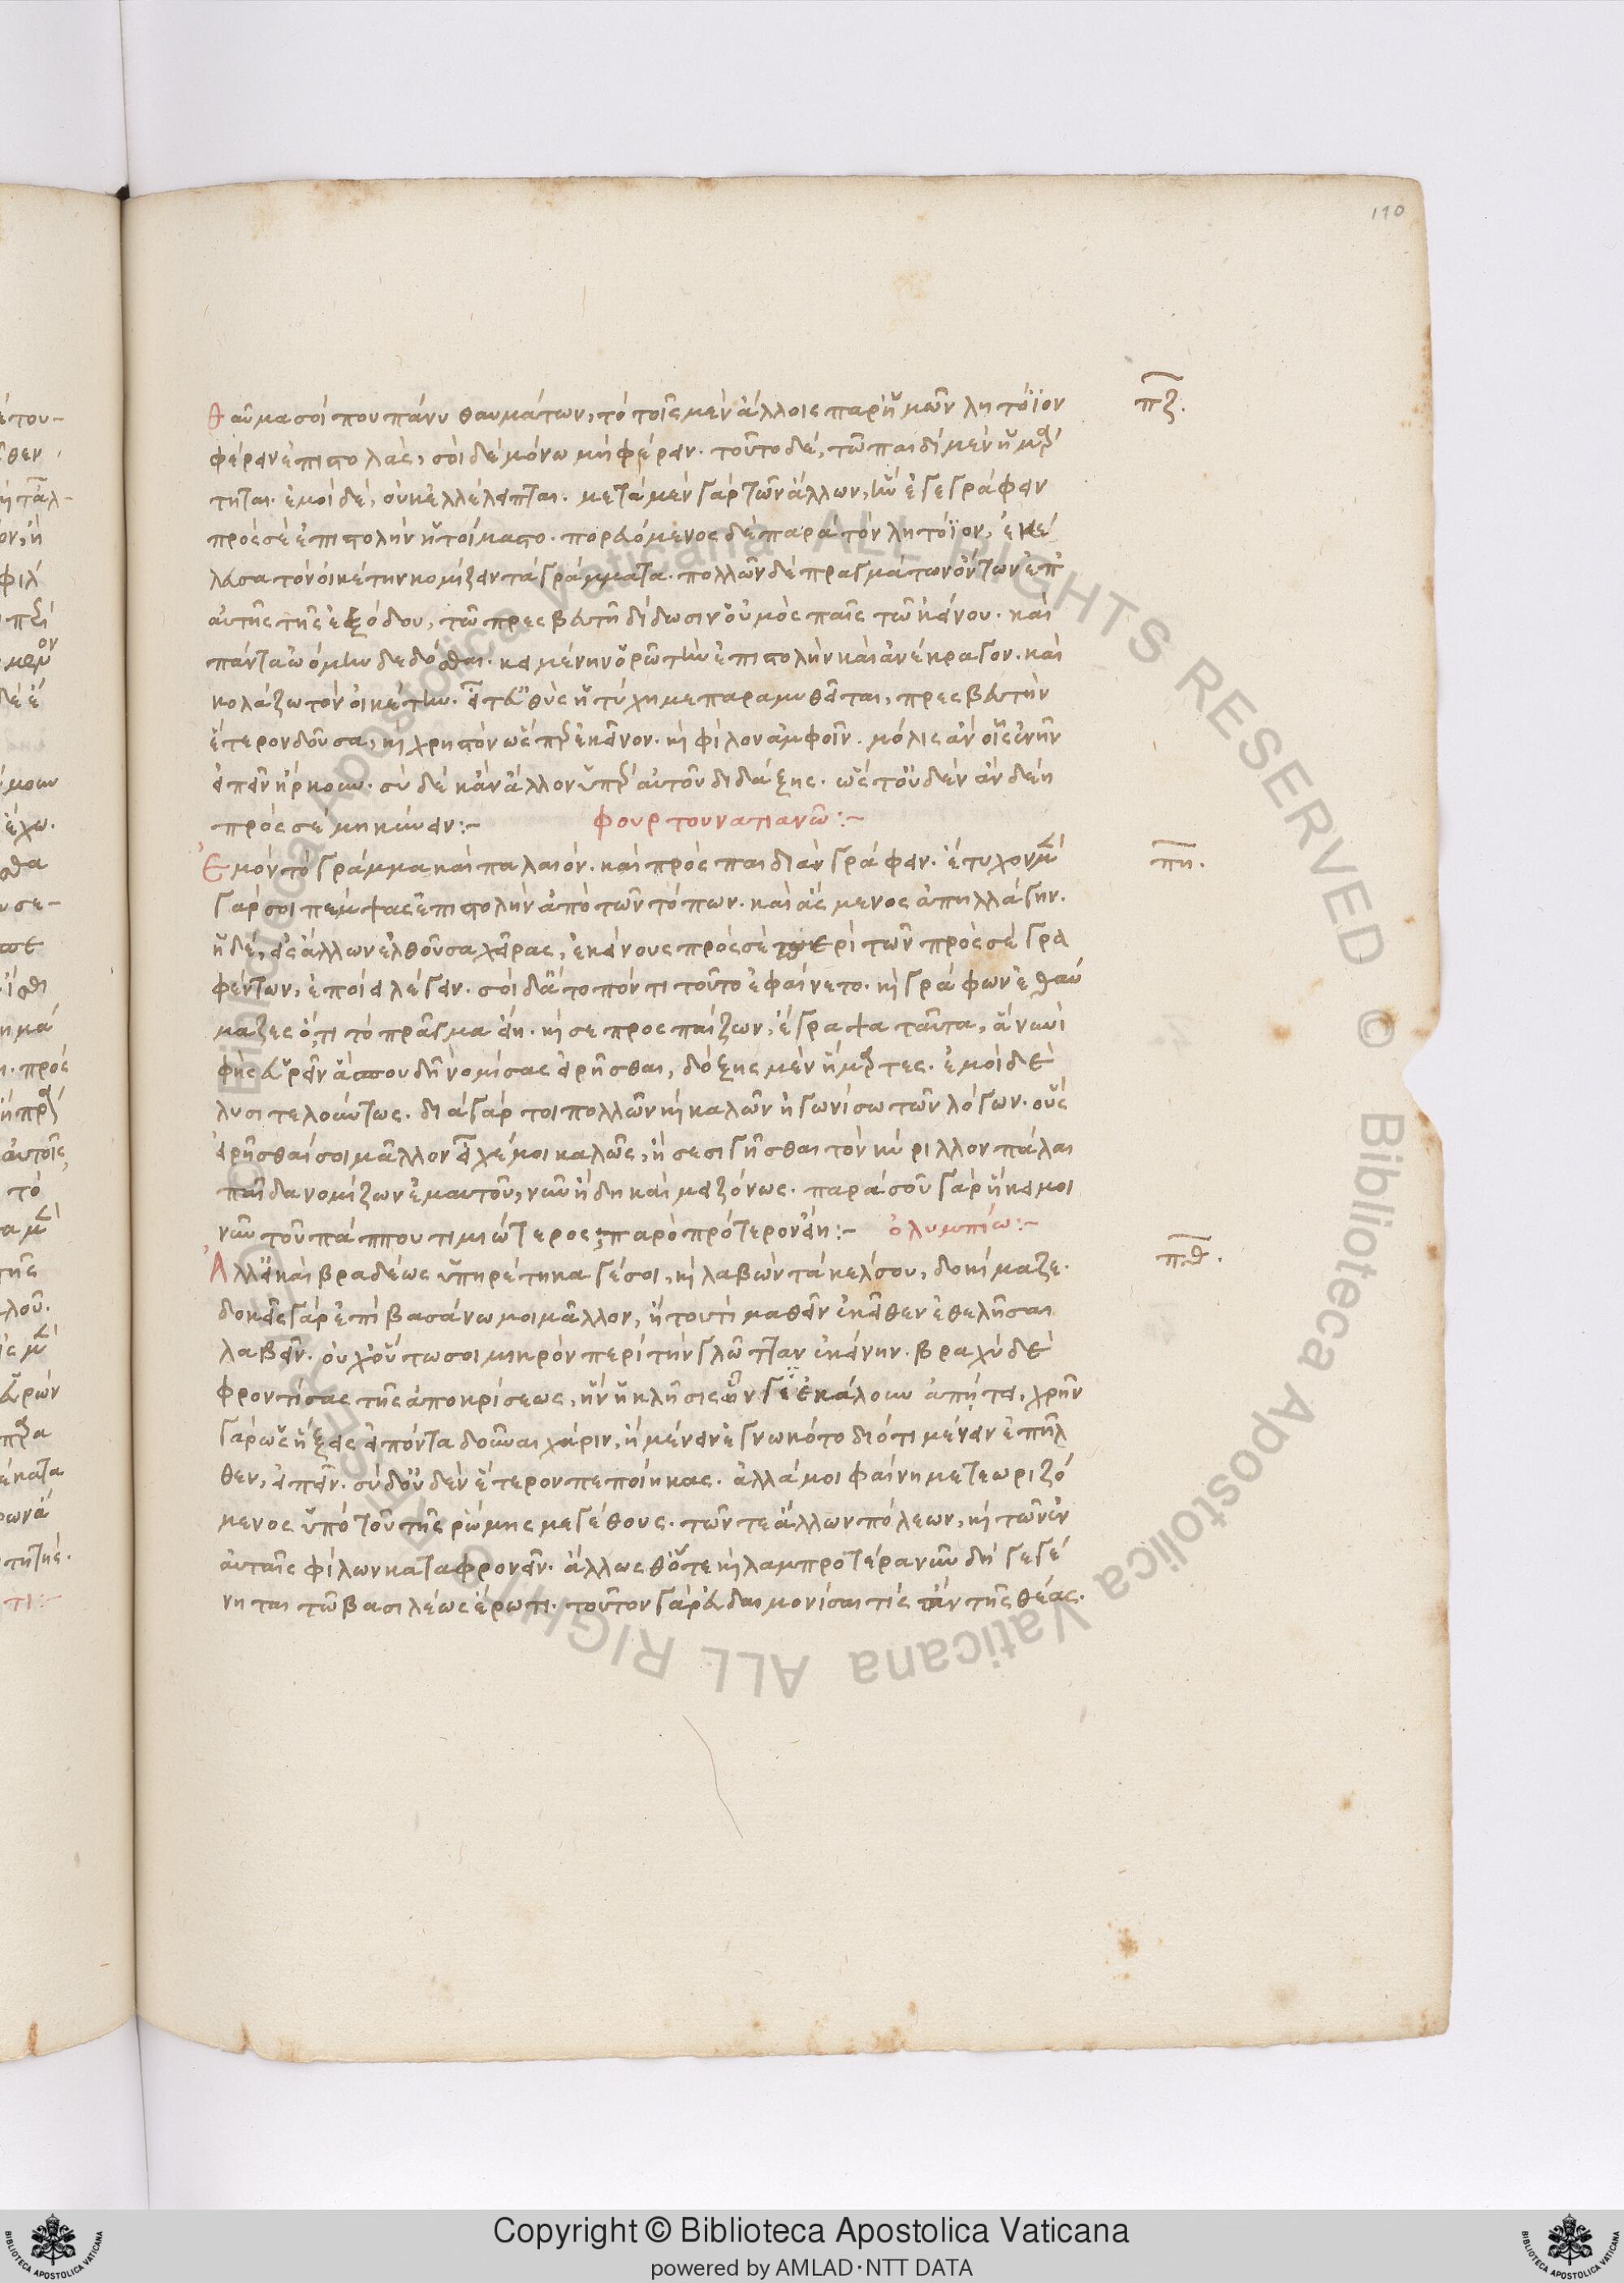 110
πζ.
Θαῦμα σοί που πάνυ θαυμάτων, τὸ τοῖς μὲν ἄλλοις παρ' ἡμῶν λητόϊον
φέρειν ἐπιστολὰς, σοὶ δὲ μόνω μὴ φέρειν. τοῦτο δὲ, τῶ παιδὶ μὲν ἡμάρ
τηται. ἐμοὶ δὲ, οὐκ ἐλλέλειπται. μετὰ μὲν γὰρ τῶν ἄλλων, ὧν ἐγεγράφειν
πρὸς σὲ ἐπιστολὴν ἡτοίμαστο. πορευόμενος δὲ παρὰ τὸν λητόϊον, ἐκέ
λευσα τὸν οἰκέτην κομίζειν τὰ γράμματα. πολλῶν δὲ πραγμάτων ὄντων ἐπ'
αὐτῆς τῆς ἐξόδου, τῶ πρεσβευτῆ δίδωσιν οὑμὸς παῖς τῶ κείνου. καὶ
πάντα ὤόμην δεδόσθαι. κειμένην ὁρῶ τὴν ἐπιστολὴν καὶ ἀνέκραγον. καὶ
κολάζω τὸν οἰκέτην. εἶτ' εὐθὺς ἡ τύχη με παραμυθεῖται, πρεσβευτὴν
ἕτερον δοῦσα, κὶ χρηστὸν ὥσπερ ἐκεῖνον. κὶ φίλον ἀμφοῖν. μόλις ἂν
εἰπεῖν ἤρκουν. σὺ δὲ κἂν ἄλλον ὑπὲρ αὐτοῦ διδάξης. ὥστ' οὐδὲν ἂν δέη
πρὸς σὲ μηκύνειν:-
Φουρτουνατιανῶ:-
πη.
Ἐμὸν τὸ γράμμα καὶ παλαιόν. καὶ πρὸς παιδιὰν γράφειν. ἔτυχον μὲν
γὰρ σοι πέμψας ἐπιστολὴν ἀπὸ τῶν τόπων. καὶ ἄσμενος ἀπηλλάγην.
ἡ δὲ, εἰς ἄλλων ἐλθοῦσα χεῖρας, ἐκείνους πρὸς σὲ περὶ τῶν πρὸς σὲ γρα
φέντων, ἐποίει λέγειν. σοὶ δ' ἄτοπόν τι τοῦτο ἐφαίνετο. κὶ γράφων ἐθαύ
μαζες ὅ,τι τὸ πρᾶγμα εἴη. κὶ σε προσπαίζων, ἔγραψα ταῦτα, ἃ νυνὶ
φὴς εὑρεῖν ἃ σπουδῆ νομίσας εἰρῆσθαι, δόξης μὲν ἥμαρτες. ἐμοὶ δὲ
λυσιτελούντως. διὰ γάρ τοι πολλῶν κὶ καλῶν ἠγωνίσω τῶν λόγων. οὓς
εἰρῆσθαί σοι μᾶλλον εἶχέ μοι καλῶς, ἢ σεσιγῆσθαι τὸν κύριλλον πάλαι
παῖδα νομίζων ἐμαυτοῦ, νῦν ἤδη καὶ μειζόνως. παρὰ σοῦ γὰρ ἥκει μοι
νῦν τοῦ πάππου τιμιώτερος, παρὸ πρότερον εἴη:-
ὀλυμπίω:-
πθ.
Ἀλλ' εἰ καὶ βραδέως ὑπηρέτηκά γέ σοι, κὶ λαβὼν τὰ κέλσου, δοκίμαζε.
δοκεῖς γὰρ ἐπὶ βασάνω μοι μᾶλλον, ἤ του τὶ μαθεῖν ἐκεῖθεν ἐθελῆσαι
λαβεῖν. οὐχ οὕτω σοι μικρὸν περὶ τὴν γλῶτταν ἐκείνην. βραχὺ δὲ
φροντίσας τῆς ἀποκρίσεως, ἣν ἡ κλῆσις ἣν γε ἐκάλουν ἀπήτει, χρῆν
γὰρ ὡς ἥξεις εἰπόντα δοῦναι χάριν, ἢ μένειν ἐγνωκότο διότι μένειν ἐπῆλ
θεν, εἰπεῖν. σὺ δ' οὐδὲν ἕτερον πεποίηκας. ἀλλά μοι φαίνη μετεωριζό
μενος ὑπὸ τοῦ τῆς ῥώμης μεγέθους. τῶν τε ἄλλων πόλεων, κὶ τῶν ἐν
αὐταῖς φίλων καταφρονεῖν. ἄλλως θ' ὅτε κὶ λαμπροτέρα νῦν δὴ γεγέ
νηται τῶ βασιλέως ἔρωτι. τοῦτον γὰρ εὐδαιμονίσαι τίς ἂν τῆς θέας.
Copyright © Biblioteca Apostolica Vaticana
powered by AMLAD·NTT DATA